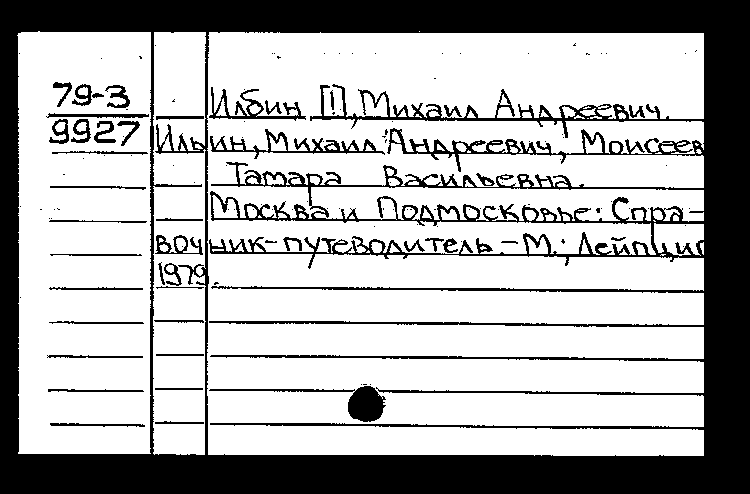 79-3
Илбин [!], Михаил Андреевич.
9927
Ильин, Михаил Андреевич, Моисеев
Тамара Васильевна.
Москва и Подмосковье: Спра-
вочник-путеводитель.-М.; Лейпциг
1979.